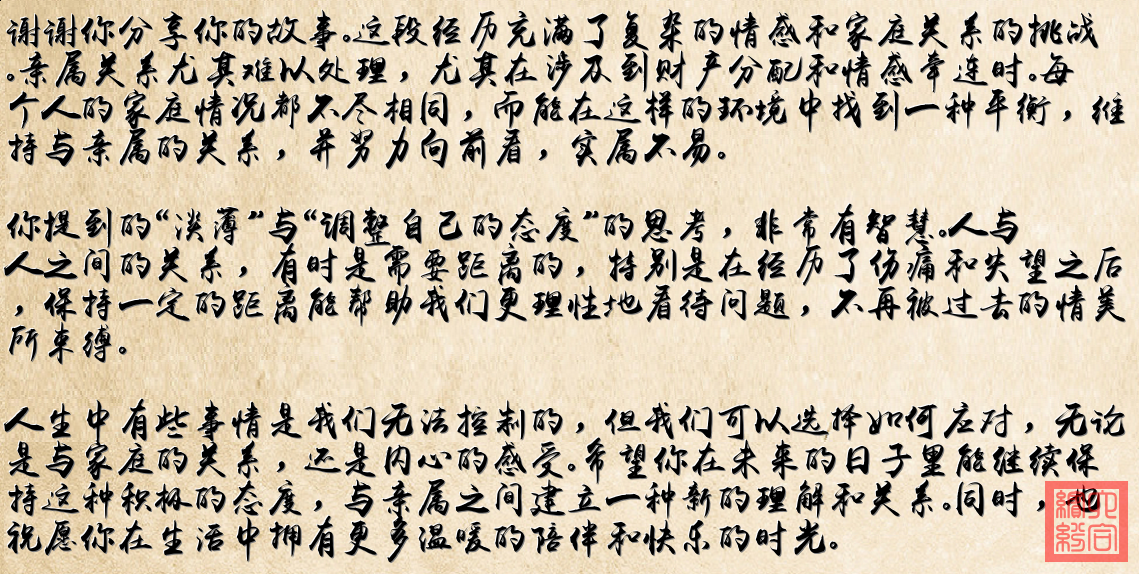 谢谢你分享你的故事。这段经历充满了复杂的情感和家庭关系的挑战
。亲属关系尤其难以处理，尤其在涉及到财产分配和情感牵连时。每
个人的家庭情况都不尽相同，而能在这样的环境中找到一种平衡，维
持与亲属的关系，并努力向前看，实属不易。
你提到的“淡薄”与“调整自己的态度”的思考，非常有智慧。人与
人之间的关系，有时是需要距离的，特别是在经历了伤痛和失望之后
，保持一定的距离能帮助我们更理性地看待问题，不再被过去的情义
所束缚。
人生中有些事情是我们无法控制的，但我们可以选择如何应对，无论
是与家庭的关系，还是内心的感受。希望你在未来的日子里能继续保
持这种积极的态度，与亲属之间建立一种新的理解和关系。同时，也
祝愿你在生活中拥有更多温暖的陪伴和快乐的时光。